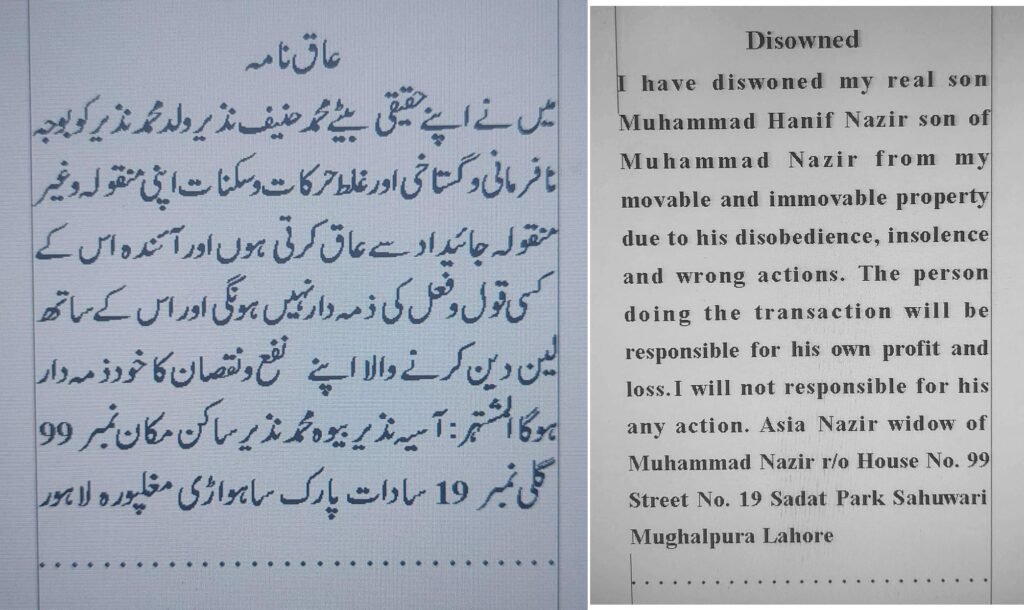 عاق نامہ
میں نے اپنے حقیقی بیٹے محمد حنیف نذیر ولد محمد نذیر کو بوجہ
نافرمانی و گستاخی اور غلط حرکات و سکنات اپنی منقولہ و غیر
منقولہ جائیداد سے عاق کرتی ہوں اور آئندہ اس کے
کسی قول و فعل کی ذمہ دار نہیں ہونگی اور اس کے ساتھ
لین دین کرنے والا اپنے نفع و نقصان کا خود ذمہ دار
ہوگا المشتہر: آسیہ نذیر بیوہ محمد نذیر ساکن مکان نمبر 99
گلی نمبر 19 سادات پارک ساہواڑی مغلپورہ لاہور
Disowned
I have diswoned my real son
Muhammad Hanif Nazir son of
Muhammad Nazir from my
movable and immovable property
due to his disobedience, insolence
and wrong actions. The person
doing the transaction will be
responsible for his own profit and
loss.I will not responsible for his
any action. Asia Nazir widow of
Muhammad Nazir r/o House No. 99
Street No. 19 Sadat Park Sahuwari
Mughalpura Lahore